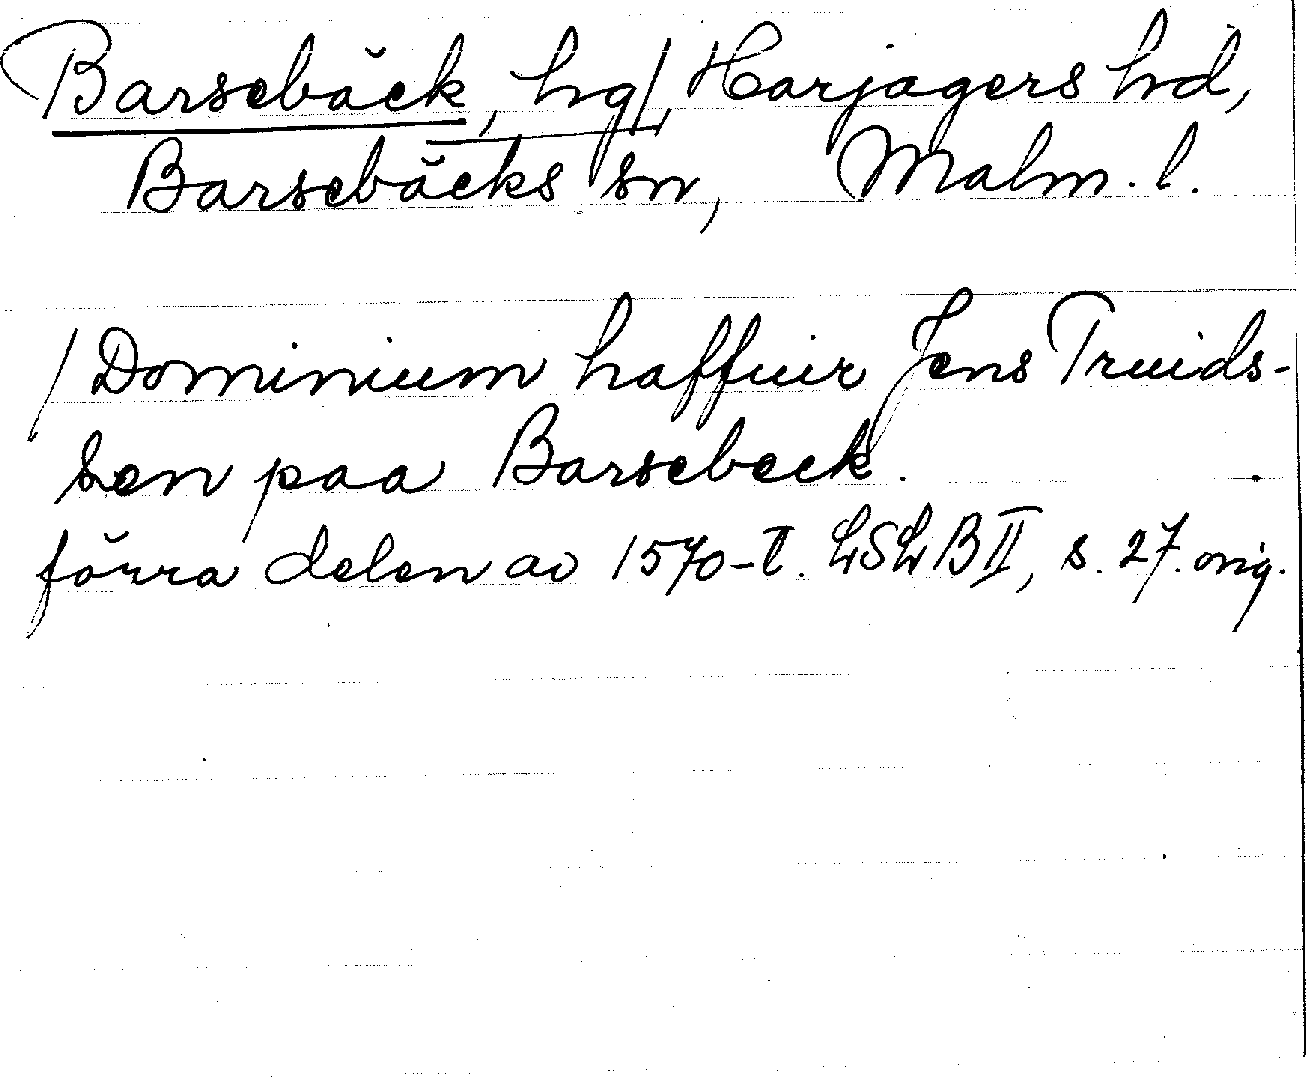 Barsebäck, hg/, Harjagers hd,
Barsebäcks sn, Malm. l.
/ Dominium haffuir Jens Truids-
sen paa Barsebeck.
förra delen av 1570-t. LSLB II, s. 27. orig.